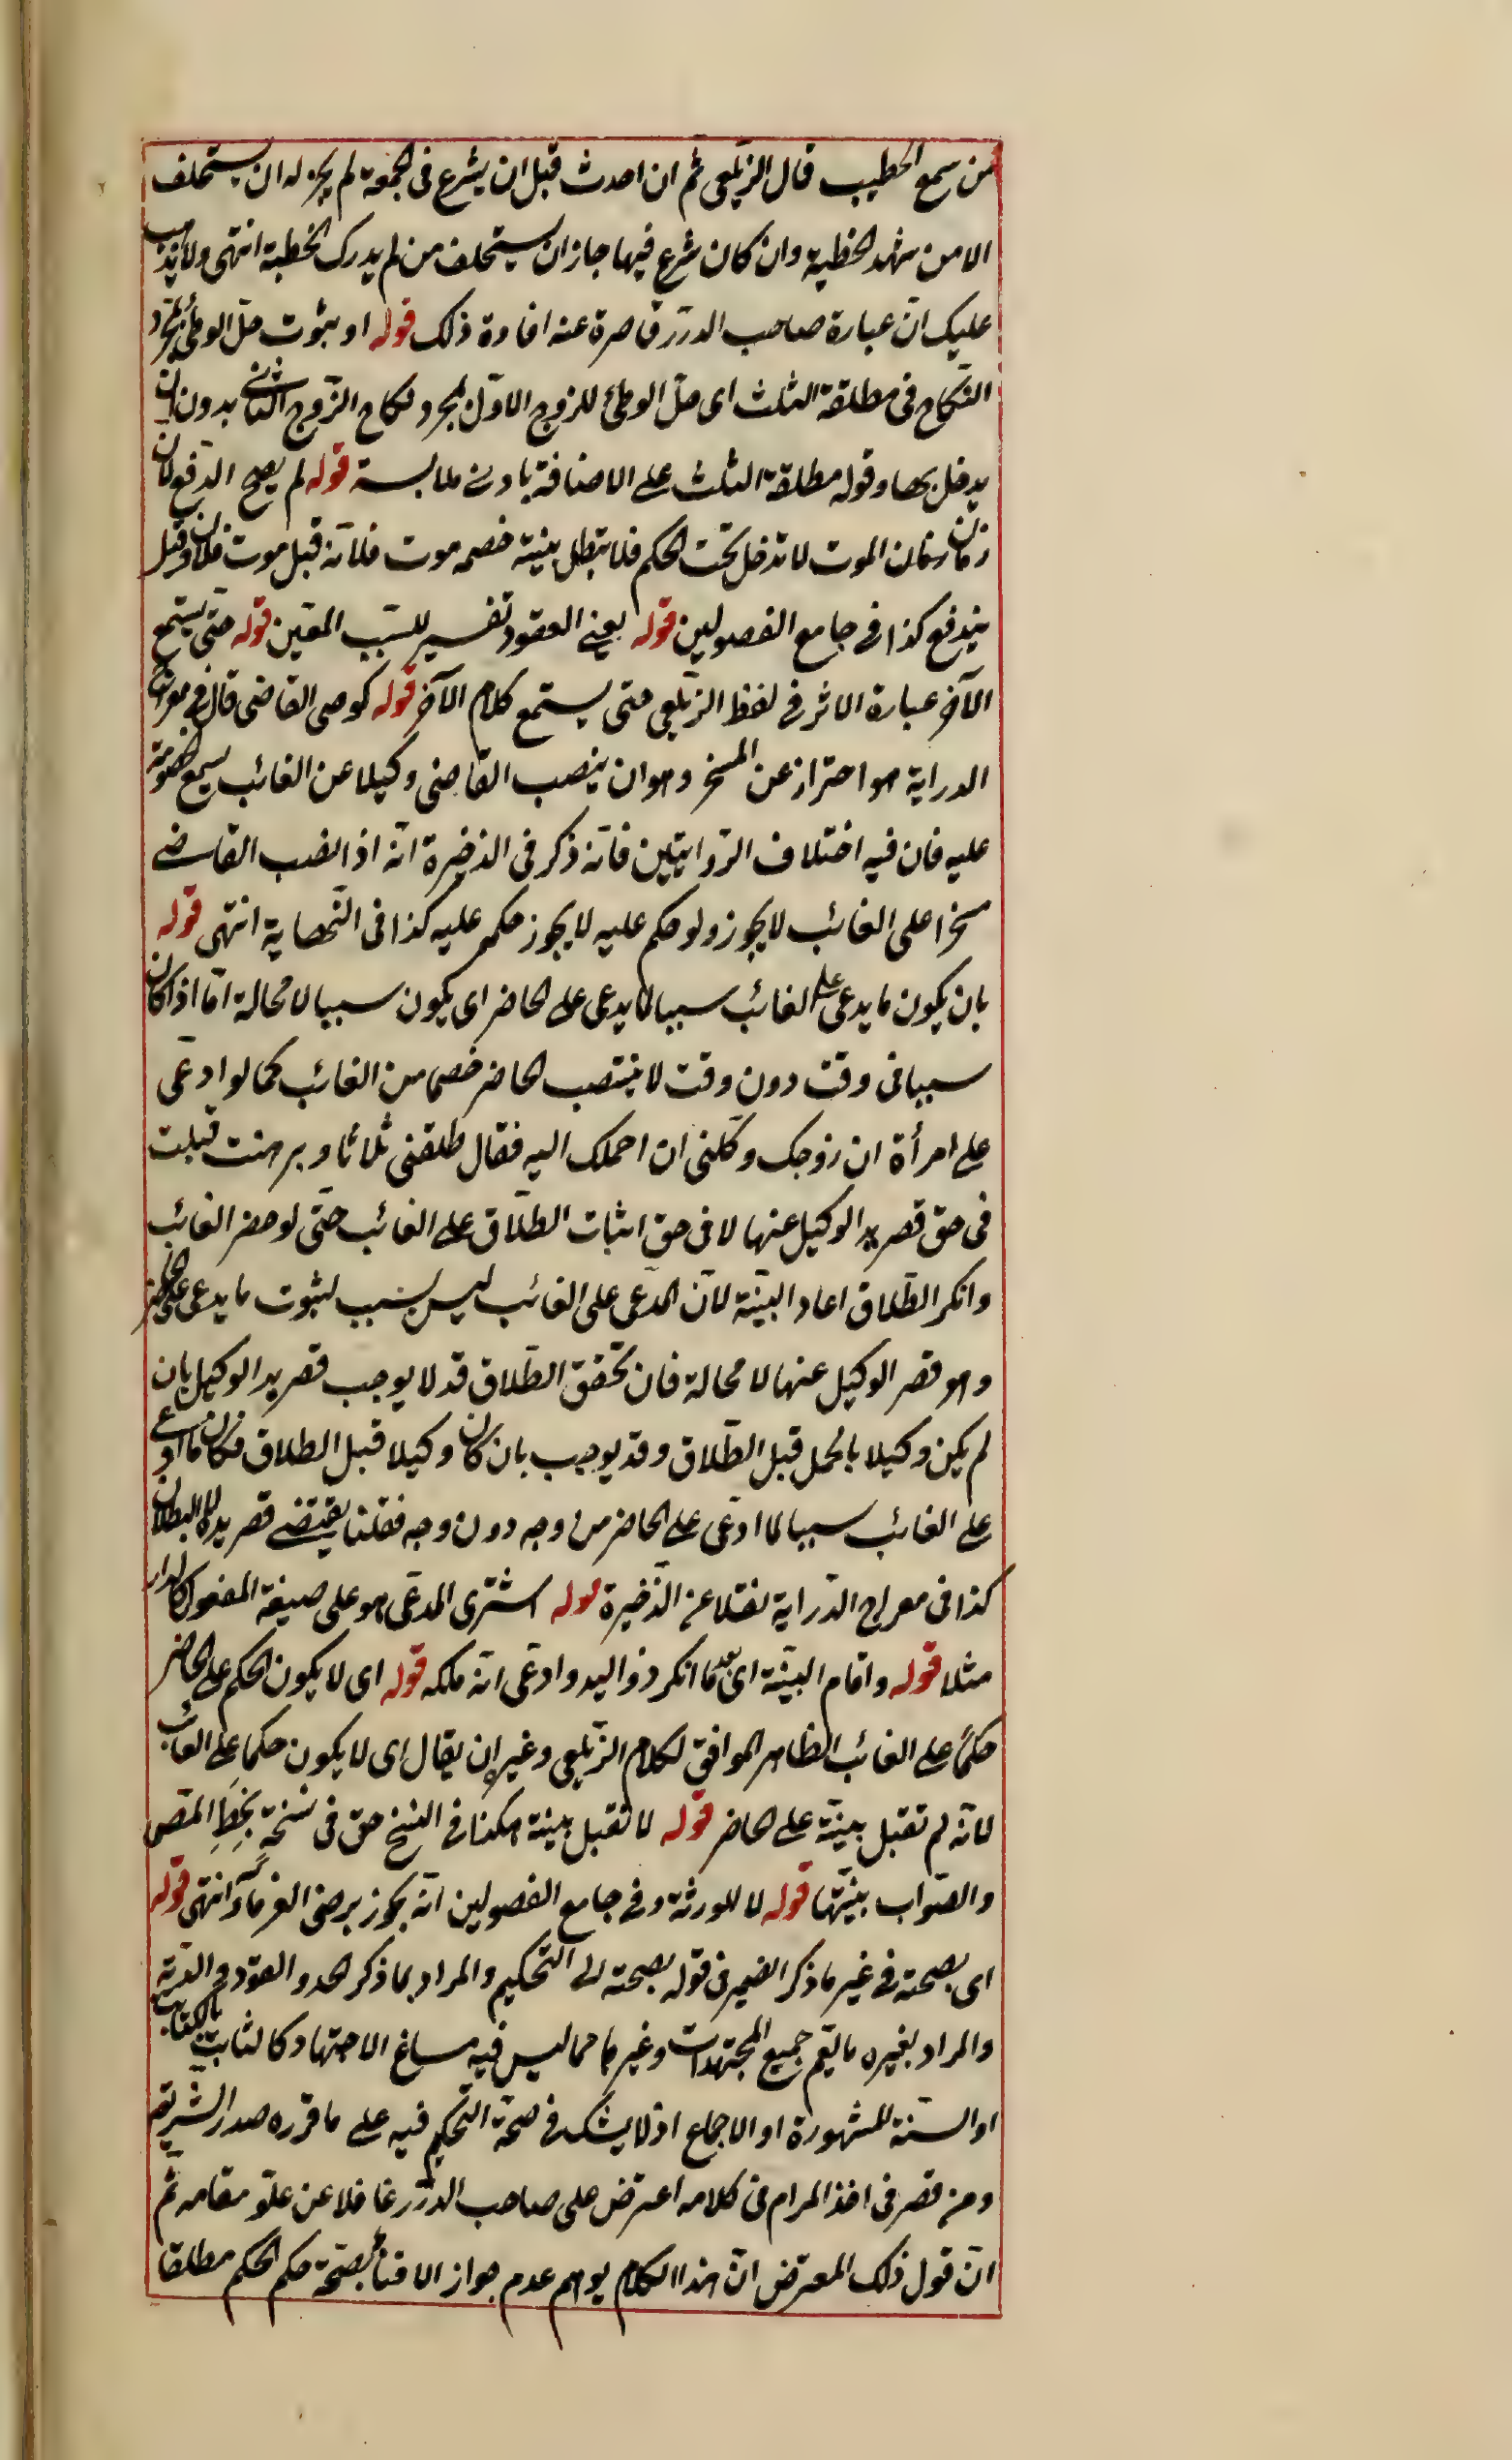 من سمع الخطيب قال الزيلعى ثم ان احدث قبل ان يشرع فى الجمعة لم يجز له ان يستخلف
الا من شهد الخطبة وان كان شرع فيها جاز ان يستخلف من لم يدرك الخطبة انتهى ولا يذهب
عليك انّ عبارة صاحب الدرر قاصرة عنه افادة ذلك قوله او بثبوت حلّ الوطئ بمجرد
النكاح فى مطلقة الثلث اى حلّ الوطئ للزوج الاوّل بمجرد نكاح الزّوج الثانى بدون ان
يدخل بها وقوله مطلقة الثلث على الاضافة بادنى ملابسة قوله لم يصحّ الدفع لان
زمان الموت لا تدخل تحت الحكم فلا تبطل بينة خصمه موت فلانه قبل موت فلان وقيل
يندفع كذا فى جامع الفصولين قوله يعنى العقود تفسير للسّبب المعّين قوله حتى يستمع
الآخر عبارة الاثر فى لفظ الزيلعى حتى يستمع كلام الآخر قوله كوصى القاضى قال فى معراج
الدراية هو احتراز عن المسخر وهو ان ينصب القاضى وكيلا عن الغائب يسمع الخصومة
عليه فان فيه اختلاف الرّوايتين فانّه ذكر فى الذخيرة انّه اذا نصب القاضى
مسخرا على الغائب لا يجوز ولو حكم عليه لا يجوز حكم عليه كذا فى النّهاية انتهى قوله
بان يكون ما يدعى على الغائب سببا لما يدعى على الحاضر اى يكون سببا لا محالة امّا اذا كان
سببا فى وقت دون وقت لا ينتصب الحاضر خصما من الغائب كما لو ادعى
على امرأة ان زوجك وكلنى ان احملك اليه فقال طلقنى ثلاثا وبرهنت قبلت
فى حق قصر يد الوكيل عنها لا فى حق اثبات الطلاق على الغائب حتى لو حضر الغائب
وانكر الطّلاق اعاد البيّنة لانّ المدعى على الغائب ليس بسبب لثبوت ما يدعى على الحاضر
وهو قصر الوكيل عنها لا محالة فان تحقق الطّلاق قد لا يوجب قصر يد الوكيل بان
لم يكن وكيلا بالحمل قبل الطّلاق وقد يوجب بان كان وكيلا قبل الطلاق فكان ما ادعى
على الغائب سببا لما ادّعى على الحاضر من وجه دون وجه فقلنا يقتضى قصر يده لا البطلان
كذا فى معراج الدّراية نقلا عن الذّخيرة قوله اشترى المدعى هو على صيغة المفعول كالدار
مثلا قوله واقام البيّنة اى بعد ما انكر ذو اليد وادّعى انّه ملكه قوله اى لا يكون الحكم على الحاضر
حكما على الغائب الظاهر الموافق لكلام الزّيلعى وغيره ان يقال اى لا يكون حكما على الغائب
لانّه لم تقبل بينّة على الحاضر قوله لا تقبل بينة هكذا فى النسخ حق فى نسخةٍ بخطِ المصنف
والصّواب بيّنتها قوله لا للورثة وفى جامع الفصولين انّه يجوز برضى الغرماء انتهى قوله
اى بصحته فى غير ما ذكر الضمير فى قوله بصحته الى التّحكيم والمراد بما ذكر الحد والقود و الدّية
والمراد بغيره ما يعّم جميع المجتهدات وغيرها مما ليس فيه مساغ الاجتهاد كالثابت بالكتاب
او السنّة المشهورة او الاجماع اذ لا يشك فى صحّة التّحكيم فيه على ما قرّره صدر الشّريعة
ومن قصر فى اخذ المرام فى كلامه اعترض على صاحب الدّرر غافلا عن علوّ مقامه ثم
انّ قول ذلك المعترض انّ هذا الكلام يوهم عدم جواز الافتاء بصحّة حكم المحكم مطلقا